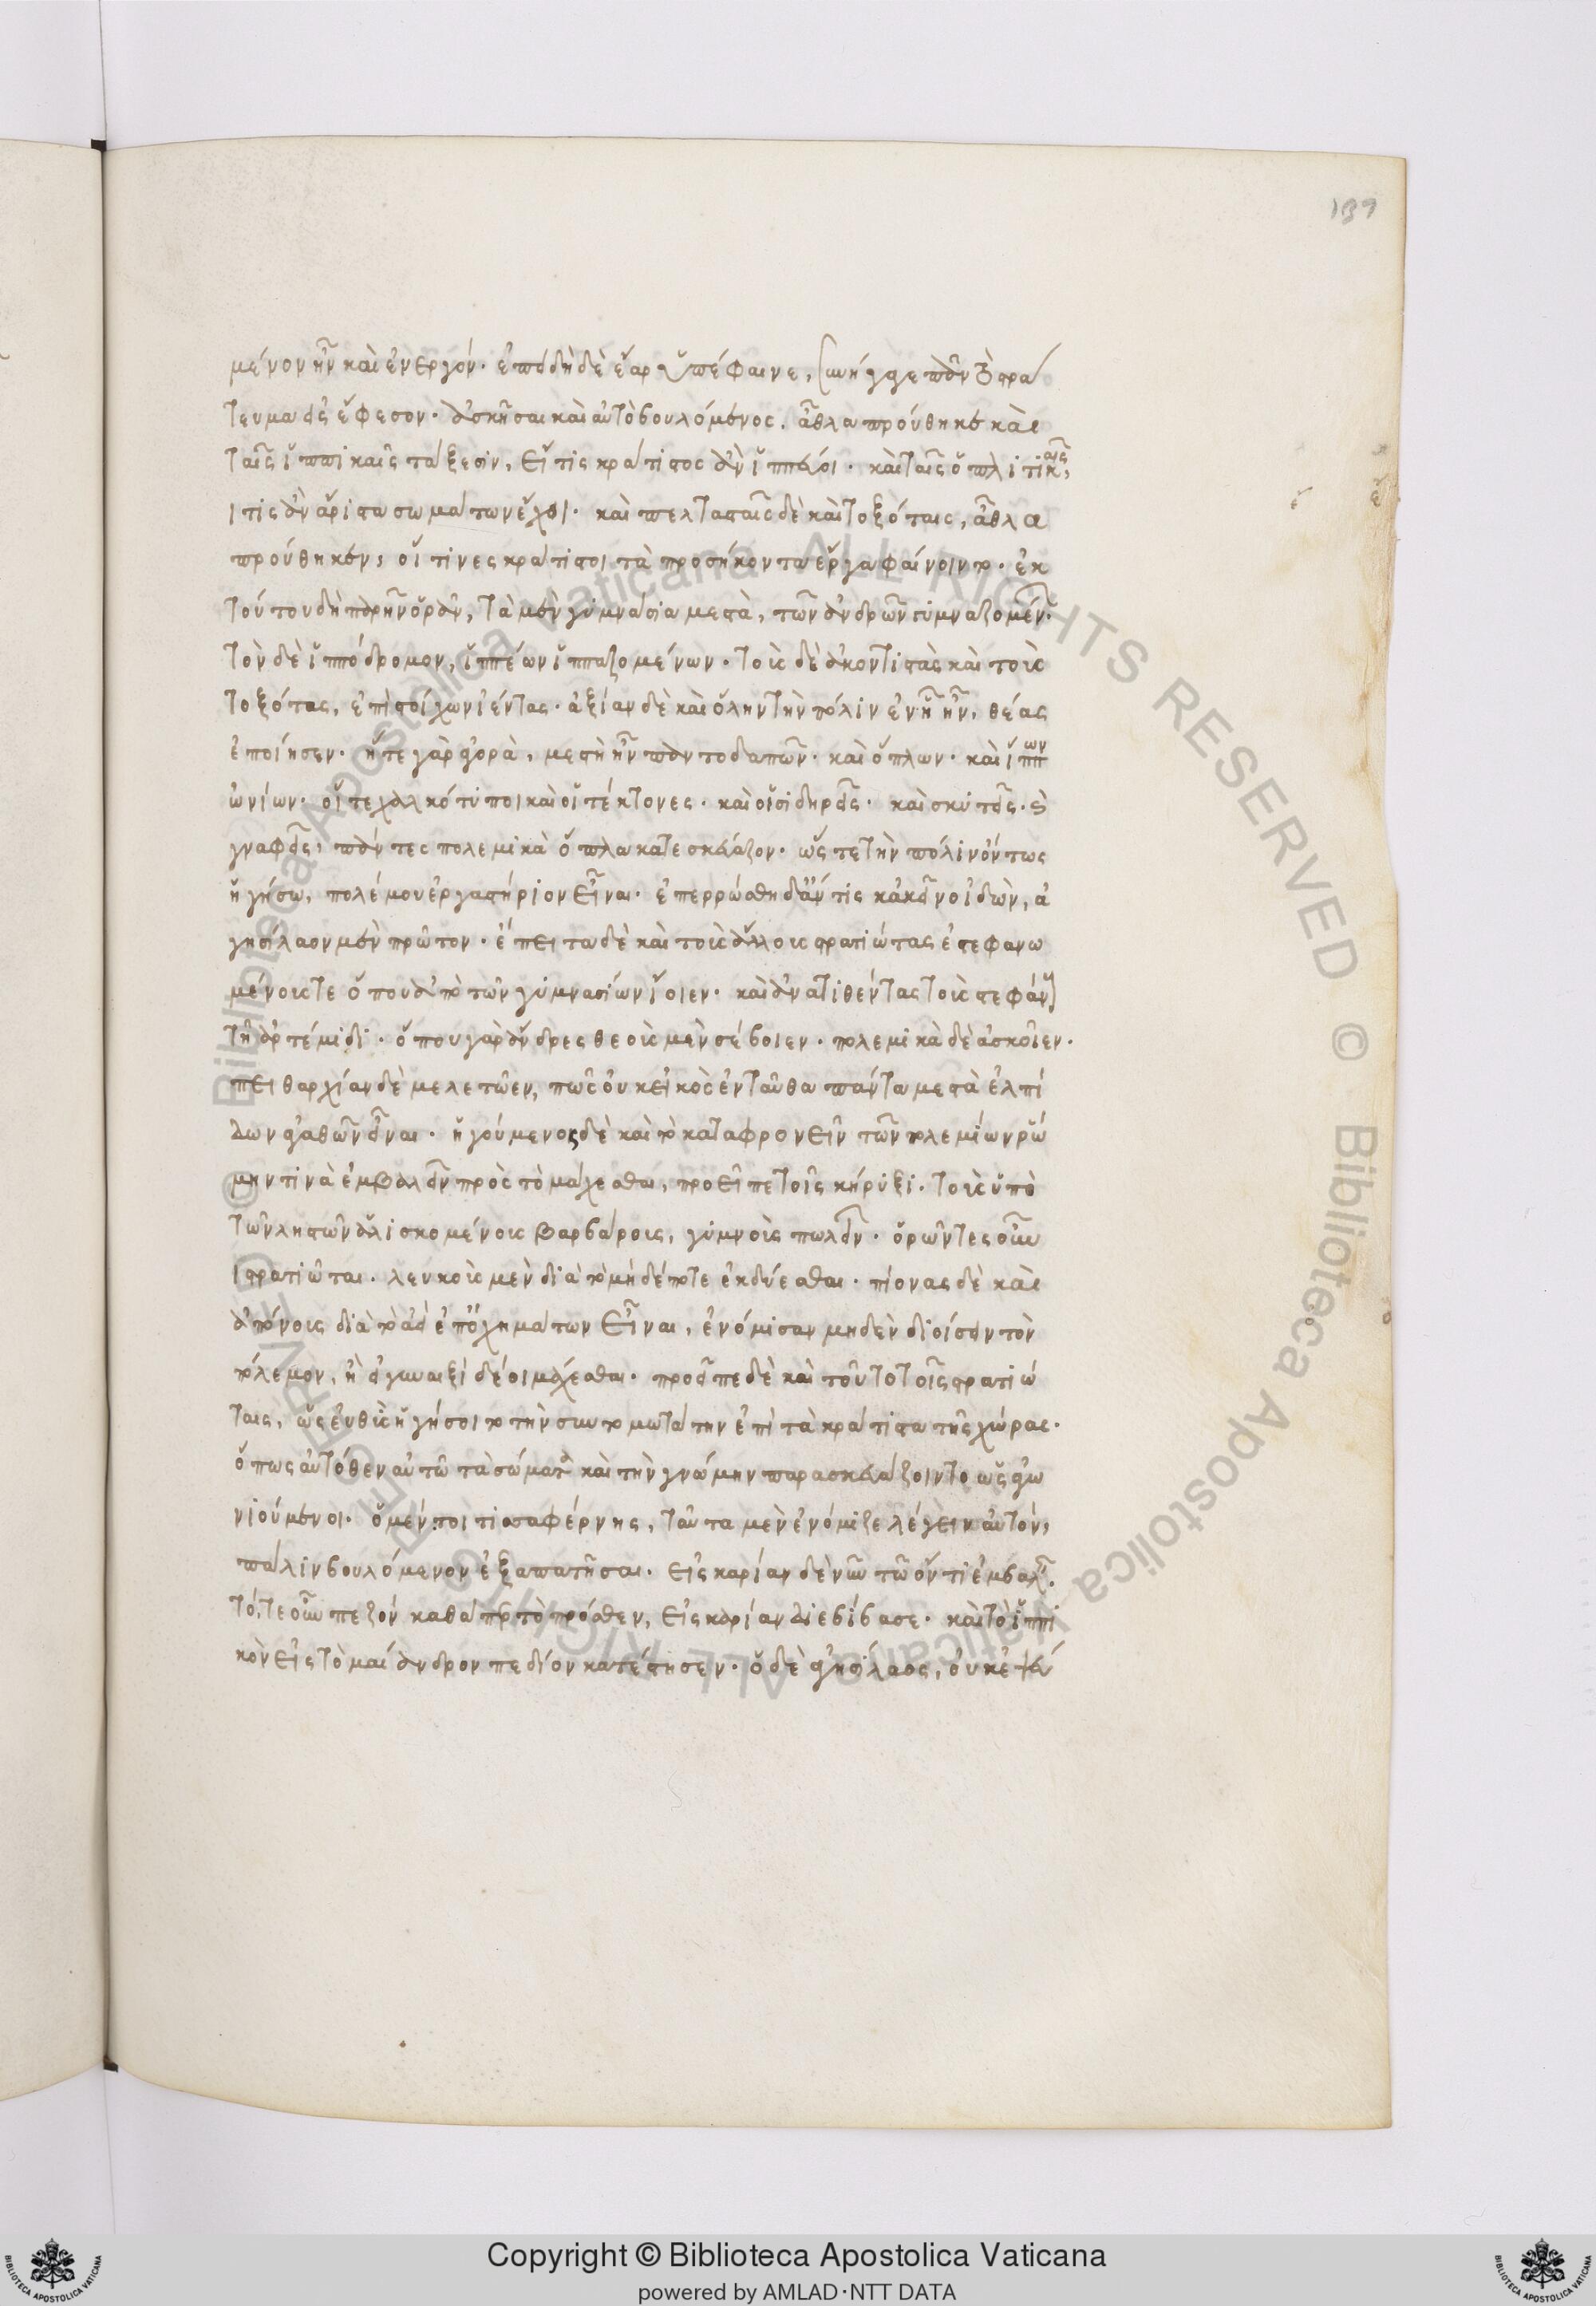 139
μένον ἦν καὶ ἐνεργόν· ἐπειδὴ δὲ ἔαρ ὑπέφαινε, συνήγαγε πᾶν τὸ στρά
τευμα εἰς ἔφεσον· ἀσκῆσαι καὶ αὐτὸ βουλόμενος. ἆθλα προύθηκε καὶ
ταῖς ἱππικαῖς τάξεσιν, εἴ τις κράτιστος ἂν ἱππεύοι· καὶ ταῖς ὁπλιτικαῖς,
ι τις ἂν ἄριστα σωμάτων ἔχοι· καὶ πελτασταῖς δὲ καὶ τοξόταις, ἆθλα
προύθηκεν, οἵτινες κράτιστοι τὰ προσήκοντα ἔργα φαίνοιντο· ἐκ
τούτου δὴ παρῆν ὁρᾶν, τὰ μὲν γυμνάσια μεστὰ, τῶν ἀνδρῶν γυμναζομένων·
τὸν δὲ ἱππόδρομον, ἱππέων ἱππαζομένων· τοὺς δὲ ἀκοντιστὰς καὶ τοὺς
τοξότας, ἐπὶ στοίχων ἰέντας· ἀξίαν δὲ καὶ ὅλην τὴν πόλιν ἐν ᾗ ἦν, θέας
ἐποίησεν· ἥ τε γὰρ ἀγορὰ, μεστὴ ἦν παντοδαπῶν· καὶ ὅπλων· καὶ ἵππων
ὠνίων· οἵ τε χαλκότυποι καὶ οἱ τέκτονες· καὶ οἱ σιδηρεῖς· καὶ σκυτεῖς· καὶ
γναφεῖς, πάντες πολεμικὰ ὅπλα κατεσκεύαζον· ὥστε τὴν πόλιν ὄντως
ἡγήσω, πολέμου ἐργαστήριον εἶναι· ἐπερρώσθη δ' ἄν τις κἀκεῖνο ἰδὼν, ἀ
γησίλαον μὲν πρῶτον· ἔπειτα δὲ καὶ τοὺς ἄλλους στρατιώτας ἐστεφανω
μένους τε ὅπου ἀπὸ τῶν γυμνασίων ἴοιεν· καὶ ἀνατιθέντας τοὺς στεφάνους
τῇ ἀρτέμιδι· ὅπου γὰρ ἄνδρες θεοὺς μὲν σέβοιεν· πολεμικὰ δὲ ἀσκοῖεν·
πειθαρχίαν δὲ μελετῷεν, πῶς οὐκ εἰκὸς ἐνταῦθα πάντα μεστὰ ἐλπί
δων ἀγαθῶν εἶναι· ἡγούμενος δὲ καὶ τὸ καταφρονεῖν τῶν πολεμίων ῥώ
μην τινὰ ἐμβαλεῖν πρὸς τὸ μάχεσθαι, προεῖπε τοῖς κήρυξι· τοὺς ὑπὸ
τῶν λῃστῶν ἁλισκομένους βαρβάρους, γυμνοὺς πωλεῖν· ὁρῶντες οὖν
ι στρατιῶται· λευκοὺς μὲν διὰ τὸ μηδέποτε ἐκδύεσθαι· πίονας δὲ καὶ
ἀπόνους διὰ τὸ ἀεὶ ἐπ' ὀχημάτων εἶναι, ἐνόμισαν μηδὲν διοίσειν τὸν
πόλεμον, ἢ εἰ γυναιξὶ δέοι μάχεσθαι· προεῖπε δὲ καὶ τοῦτο τοῖς στρατιώ
ταις, ὡς εὐθὺς ἡγήσοιτο τὴν συντομωτάτην ἐπὶ τὰ κράτιστα τῆς χώρας·
ὅπως αὐτόθεν αὐτῷ τὰ σώματα καὶ τὴν γνώμην παρασκευάζοιντο ὡς ἀγω
νιούμενοι· ὁ μέντοι τισσαφέρνης, ταῦτα μὲν ἐνόμιζε λέγειν αὐτὸν,
πάλιν βουλόμενον ἐξαπατῆσαι· εἰς καρίαν δὲ νῦν τῷ ὄντι ἐμβαλεῖν·
τό,τε οὖν πεζὸν καθάπερ τὸ πρόσθεν, εἰς καρίαν διεβίβασε· καὶ τὸ ἱππι
κὸν εἰς τὸ μαιάνδρον πεδίον κατέστησεν· ὁ δὲ ἀγησίλαος, οὐκ ἐψεύ
Copyright © Biblioteca Apostolica Vaticana
powered by AMLAD·NTT DATA